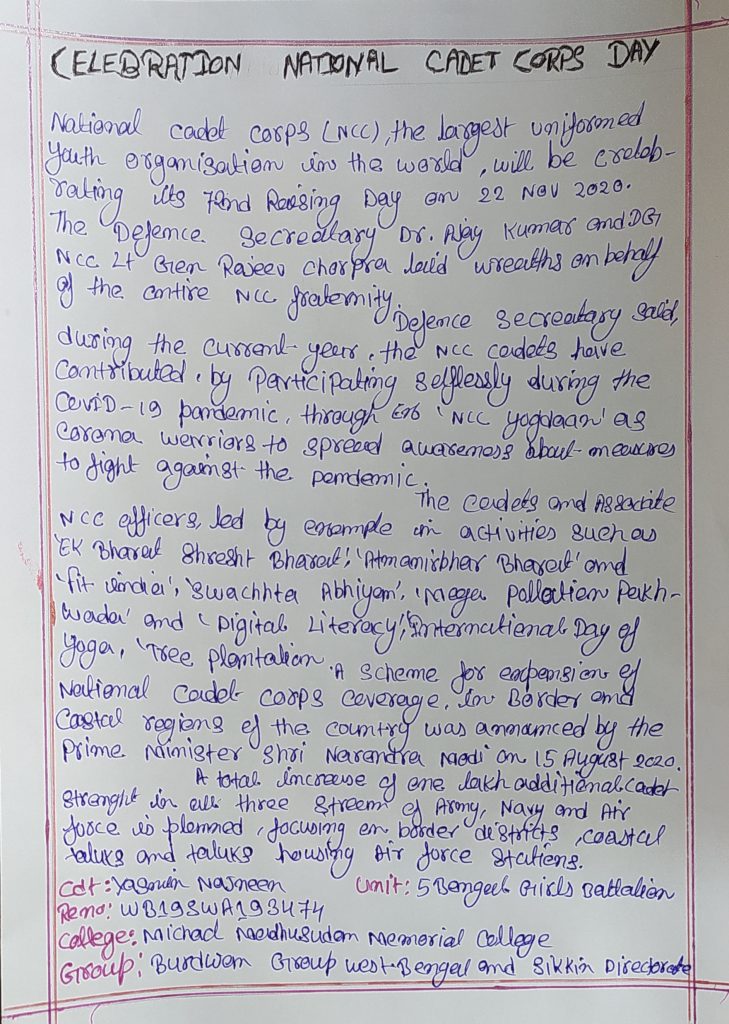 CELEBRATION NATIONAL CADET CORPS DAY
National cadet corps (NCC), the largest uniformed
Youth organisation in the world, will be creteb-
rating its 72nd Raising Day on 22 NOV 2020.
The Defence Secreatary Dr. Ajay Kumar and DG
NCC Lt Gen Rajeev Chorpra laid wreaths on behalf
of the entire NCC fraternity.
Defence Secreatary said,
during the current year, the NCC cadets have
Contributed, by Participating selflessly during the
COVID-19 pandemic, through 'NCC Yogdaan' as
Corona warriors to spread awareness about measures
to fight against the pandemic.
The cadets and Associate
NCC officers, led by example in activities such as
'EK Bharat Shresht Bharat', 'Atmanirbhar Bharat' and
'fit india', 'Swachhta Abhiyan', 'Mega Pollution Pakh-
wada' and 'Digital Literacy', 'International Day of
Yoga, 'Tree Plantation. A scheme for expansion of
National Cadet corps coverage, in Border and
Coastal regions of the country was announced by the
Prime Minister Shri Narendra Modi on 15 August 2020.
A total increase of one lakh additional cadet
Strenght in all three Stream of Army, Navy and Air
force is planned, focusing on border districts, coastal
taluks and taluks housing Air force stations.
Cdt: Yasmin Nasneen Unit: 5 Bengal Girls Battalion
Reno: WB19SWA193474
College: Michad Madhusudan Memorial College
Group: Burdwan Group West-Bengal and Sikkin Directorate